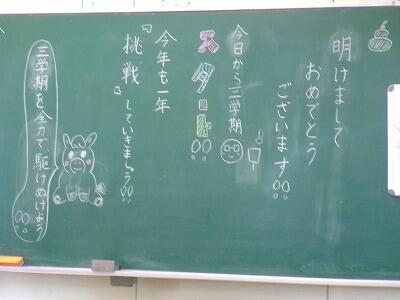 明けまして
おめでとう
ございます!!
今日から三学期
スタート!!
今年も一年
『挑戦』していきましょう!!
三学期を全力で駆けぬけよう!!